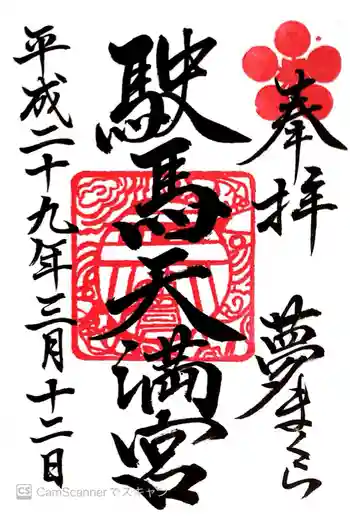 奉拝
夢まくら
駛馬天満宮
平成二十九年三月十二日
CS CamScanner でスキャン